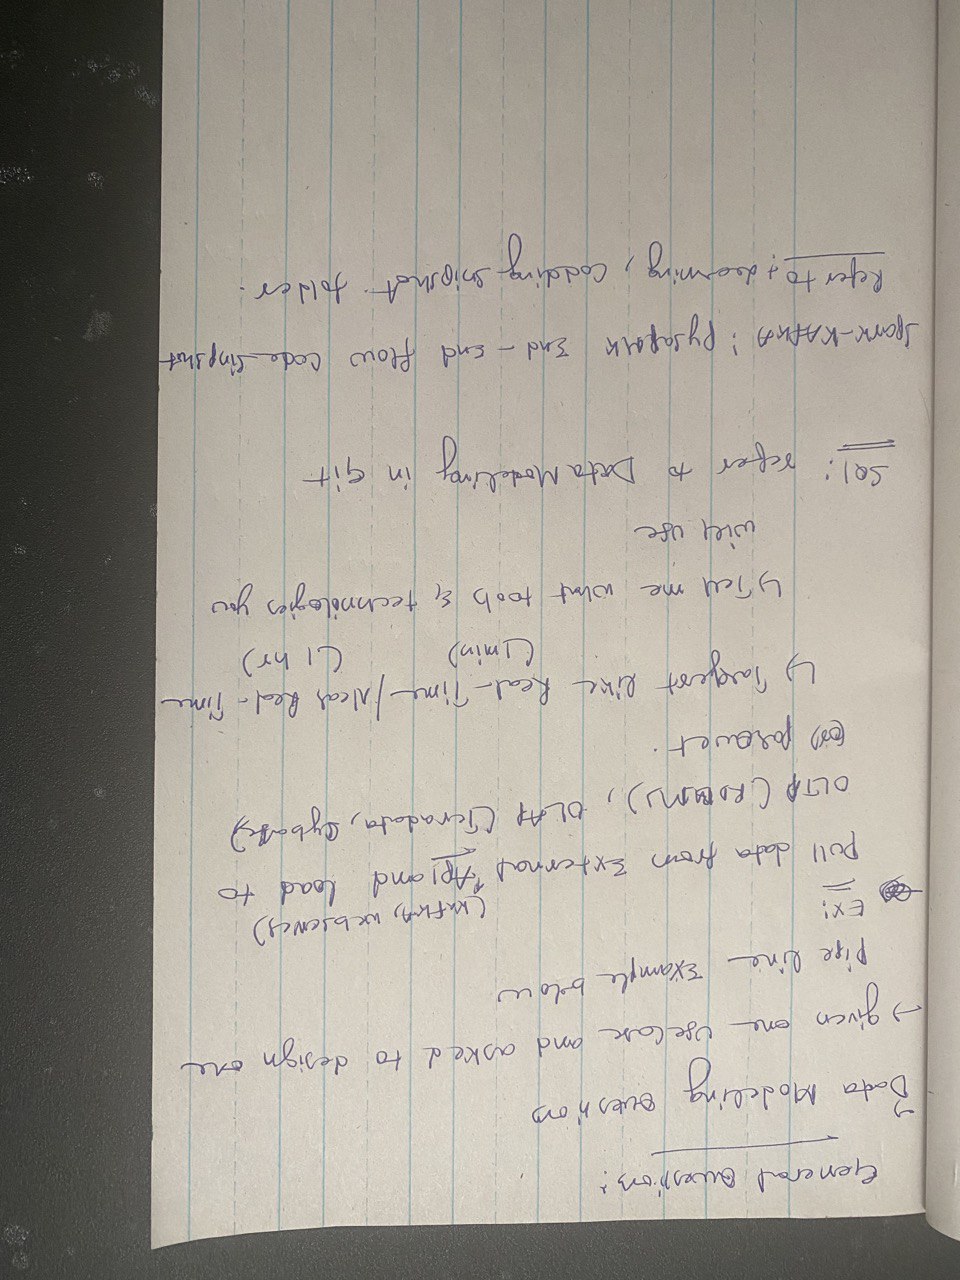 General Questions:
→ Data Modeling Questions
→ given one Use Case and asked to design one
Pipe line Example below
EX:
(KAFKA, webservices)
Pull data from External API and load to
OLTP (RDBMS), OLAP (Teradata, Sybase)
(or) parquet.
↳ Target like Real-Time/Near Real-Time
(1min) (1 hr)
↳ Tell me what tools & technologies you
will use
SQl: refer to Data Modeling in Git
Spark-KAFKA: pysapark End-End flow Code_Sinpshot
Refer to learning, Codding-Snipshot. folder.